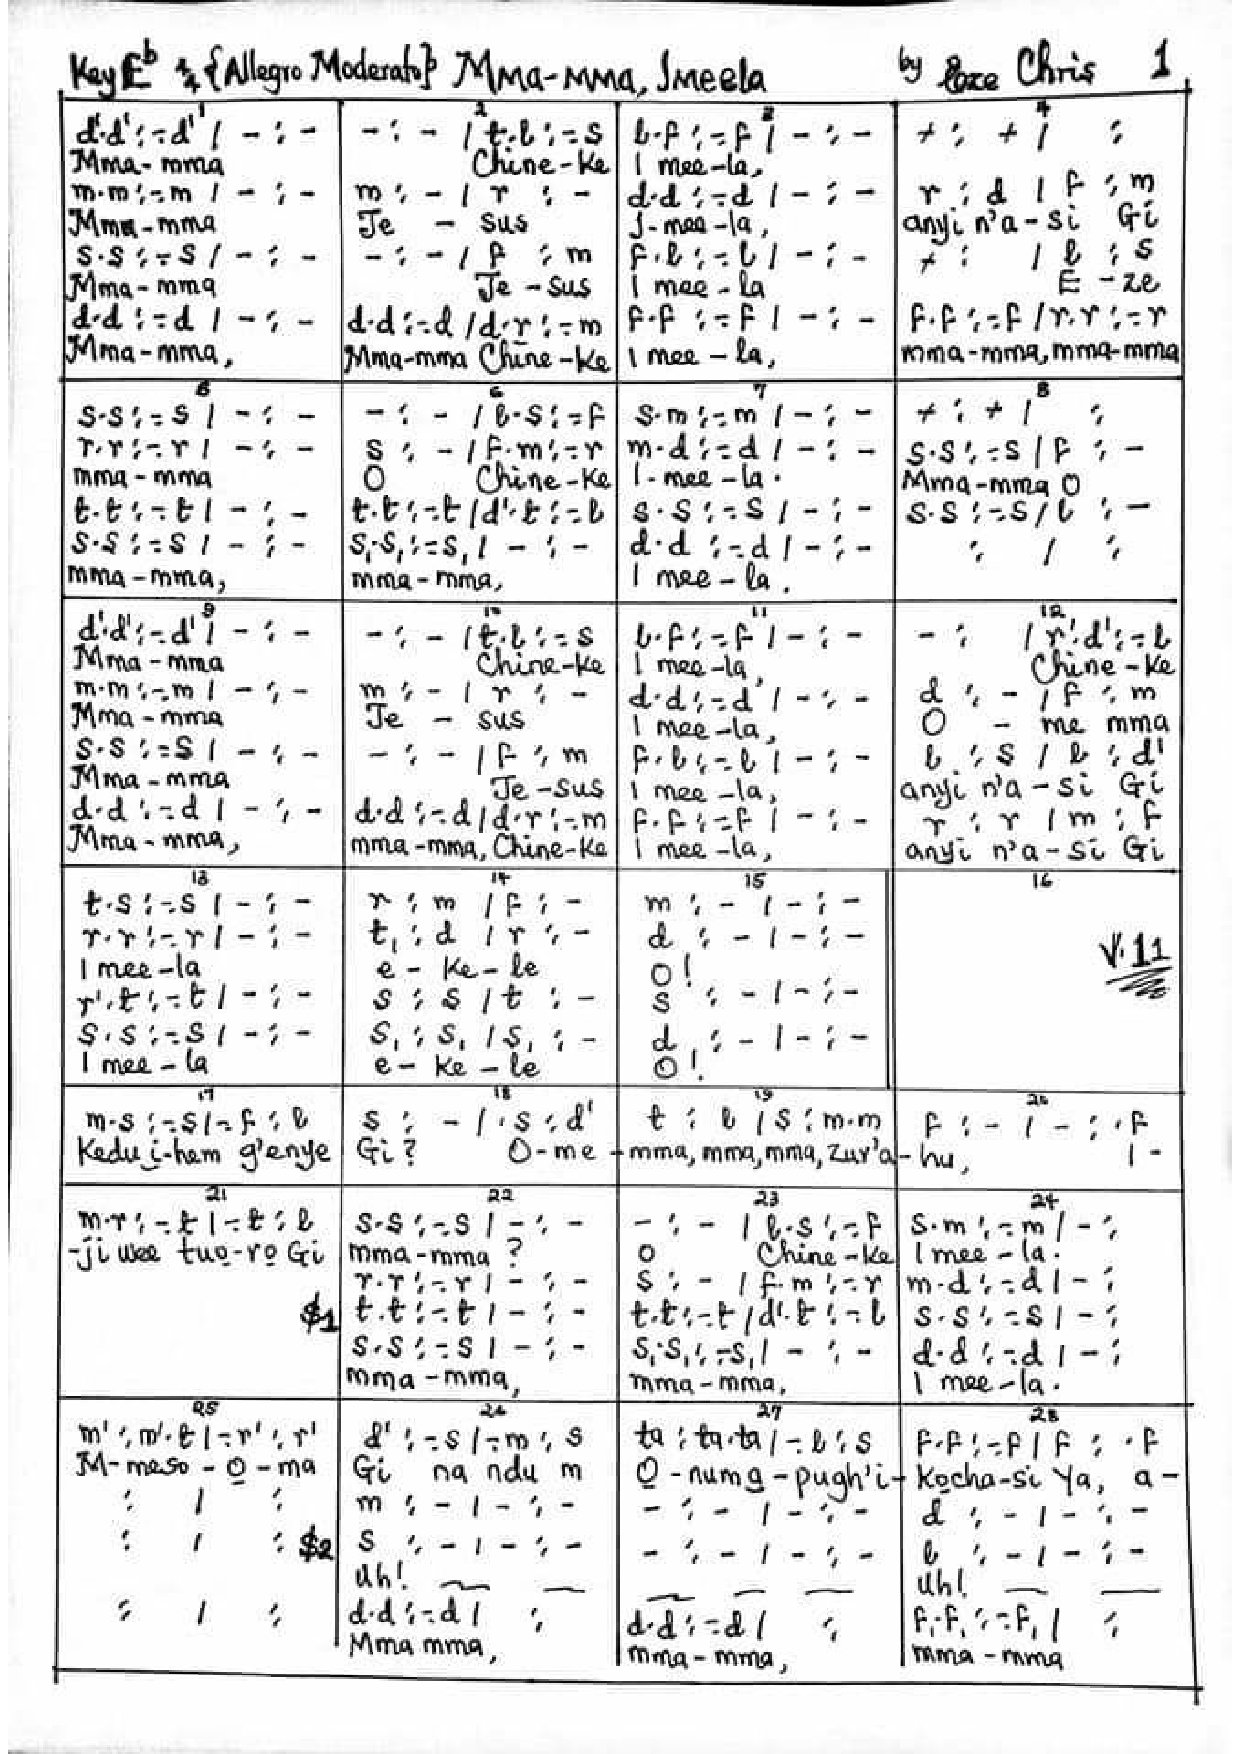 Key E♭ 4/4 {Allegro Moderato} Mma-mma, Imeela by Eze Chris 1
1 2 3 4
d'.d' :-.d' | - : - - : - | t.l :-.s l.f :-.f | - : - + : + | :
Mma-mma Chine-ke I mee-la,
m.m :-.m | - : - m : - | r : - d.d :-.d | - : - r : d | f : m
Mma-mma Je - sus I-mee-la, anyi n'a-si Gi
s.s :-.s | - : - - : - | f : m f.l :-.l | - : - + : | l : s
Mma-mma Je-sus I mee-la E-ze
d.d :-.d | - : - d.d :-.d | d.r :-.m f.f :-.f | - : - f.f :-.f | r.r :-.r
Mma-mma, Mma-mma Chine-ke I mee-la, mma-mma, mma-mma
5 6 7 8
s.s :-.s | - : - - : - | l.s :-.f s.m :-.m | - : - + : + | :
r.r :-.r | - : - s : - | f.m :-.r m.d :-.d | - : - s.s :-.s | f : -
mma-mma O Chine-ke I-mee-la. Mma-mma O
t.t :-.t | - : - t.t :-.t | d'.t :-.l s.s :-.s | - : - s.s :-.s | l : -
s.s :-.s | - : - s₁.s₁ :-.s₁ | - : - d.d :-.d | - : - : | :
mma-mma, mma-mma, I mee-la.
9 10 11 12
d'.d' :-.d' | - : - - : - | t.l :-.s l.f :-.f | - : - - : | r'.d' :-.l
Mma-mma Chine-ke I mee-la, Chine-ke
m.m :-.m | - : - m : - | r : - d.d :-.d | - : - d : - | f : m
Mma-mma Je - sus I mee-la, O - me mma
s.s :-.s | - : - - : - | f : m f.l :-.l | - : - l : s | l : d'
Mma-mma Je-sus I mee-la, anyi n'a-si Gi
d.d :-.d | - : - d.d :-.d | d.r :-.m f.f :-.f | - : - r : r | m : f
Mma-mma, mma-mma, Chine-ke I mee-la, anyi n'a-si Gi
13 14 15 16
t.s :-.s | - : - r : m | f : - m : - | - : -
r.r :-.r | - : - t₁ : d | r : - d : - | - : - V.11
I mee-la e-ke-le O!
r'.t :-.t | - : - s : s | t : - s : - | - : -
s.s :-.s | - : - s₁ : s₁ | s₁ : - d : - | - : -
I mee-la e-ke-le O!
17 18 19 20
m.s :-.s | -.f : l s : - | .s : d' t : l | s : m.m f : - | - : .f
Kedu i-hem g'enye Gi? O-me-mma, mma, mma, zur'a-hu, I-
21 22 23 24
m.r :-.t | -.t : l s.s :-.s | - : - - : - | l.s :-.f s.m :-.m | - :
-ji wee tuo-ro Gi mma-mma? O Chine-ke I mee-la.
r.r :-.r | - : - s : - | f.m :-.r m.d :-.d | - :
$1 t.t :-.t | - : - t.t :-.t | d'.t :-.l s.s :-.s | - :
s.s :-.s | - : - s₁.s₁ :-.s₁ | - : - d.d :-.d | - :
mma-mma, mma-mma, I mee-la.
25 26 27 28
m' : m'.t | -.r' : r' d' :-.s | -.m : s ta : ta.ta | -.l : s f.f :-.f | f : .f
M-meso-O-ma Gi na ndu m O-numa-pugh'i-kocha-si Ya, a-
: | : m : - | - : - - : - | - : - d : - | - : -
: | : $2 s : - | - : - - : - | - : - l : - | - : -
Uh! Uh!
: | : d.d :-.d | : d.d :-.d | : f₁.f₁ :-.f₁ | :
Mma mma, mma-mma, mma-mma